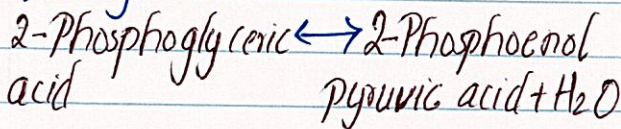 2-Phosphoglyceric ⟷ 2-Phosphoenol
acid pyruvic acid + H2O